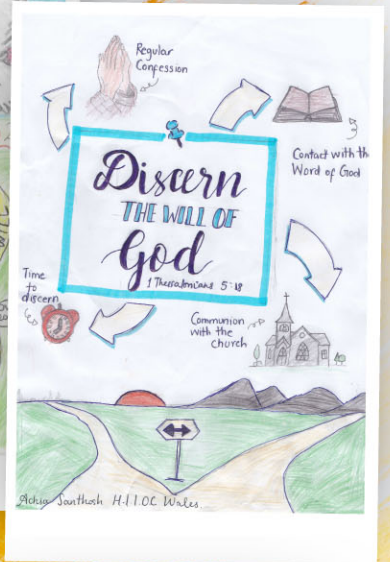 Regular
Confession
Contact with the
Word of God
Discern
THE WILL OF
God
1 Thessalonians 5:18
Time
to
discern
Communion
with the
church
Achsa Santhosh H.I.I.O.C Wales